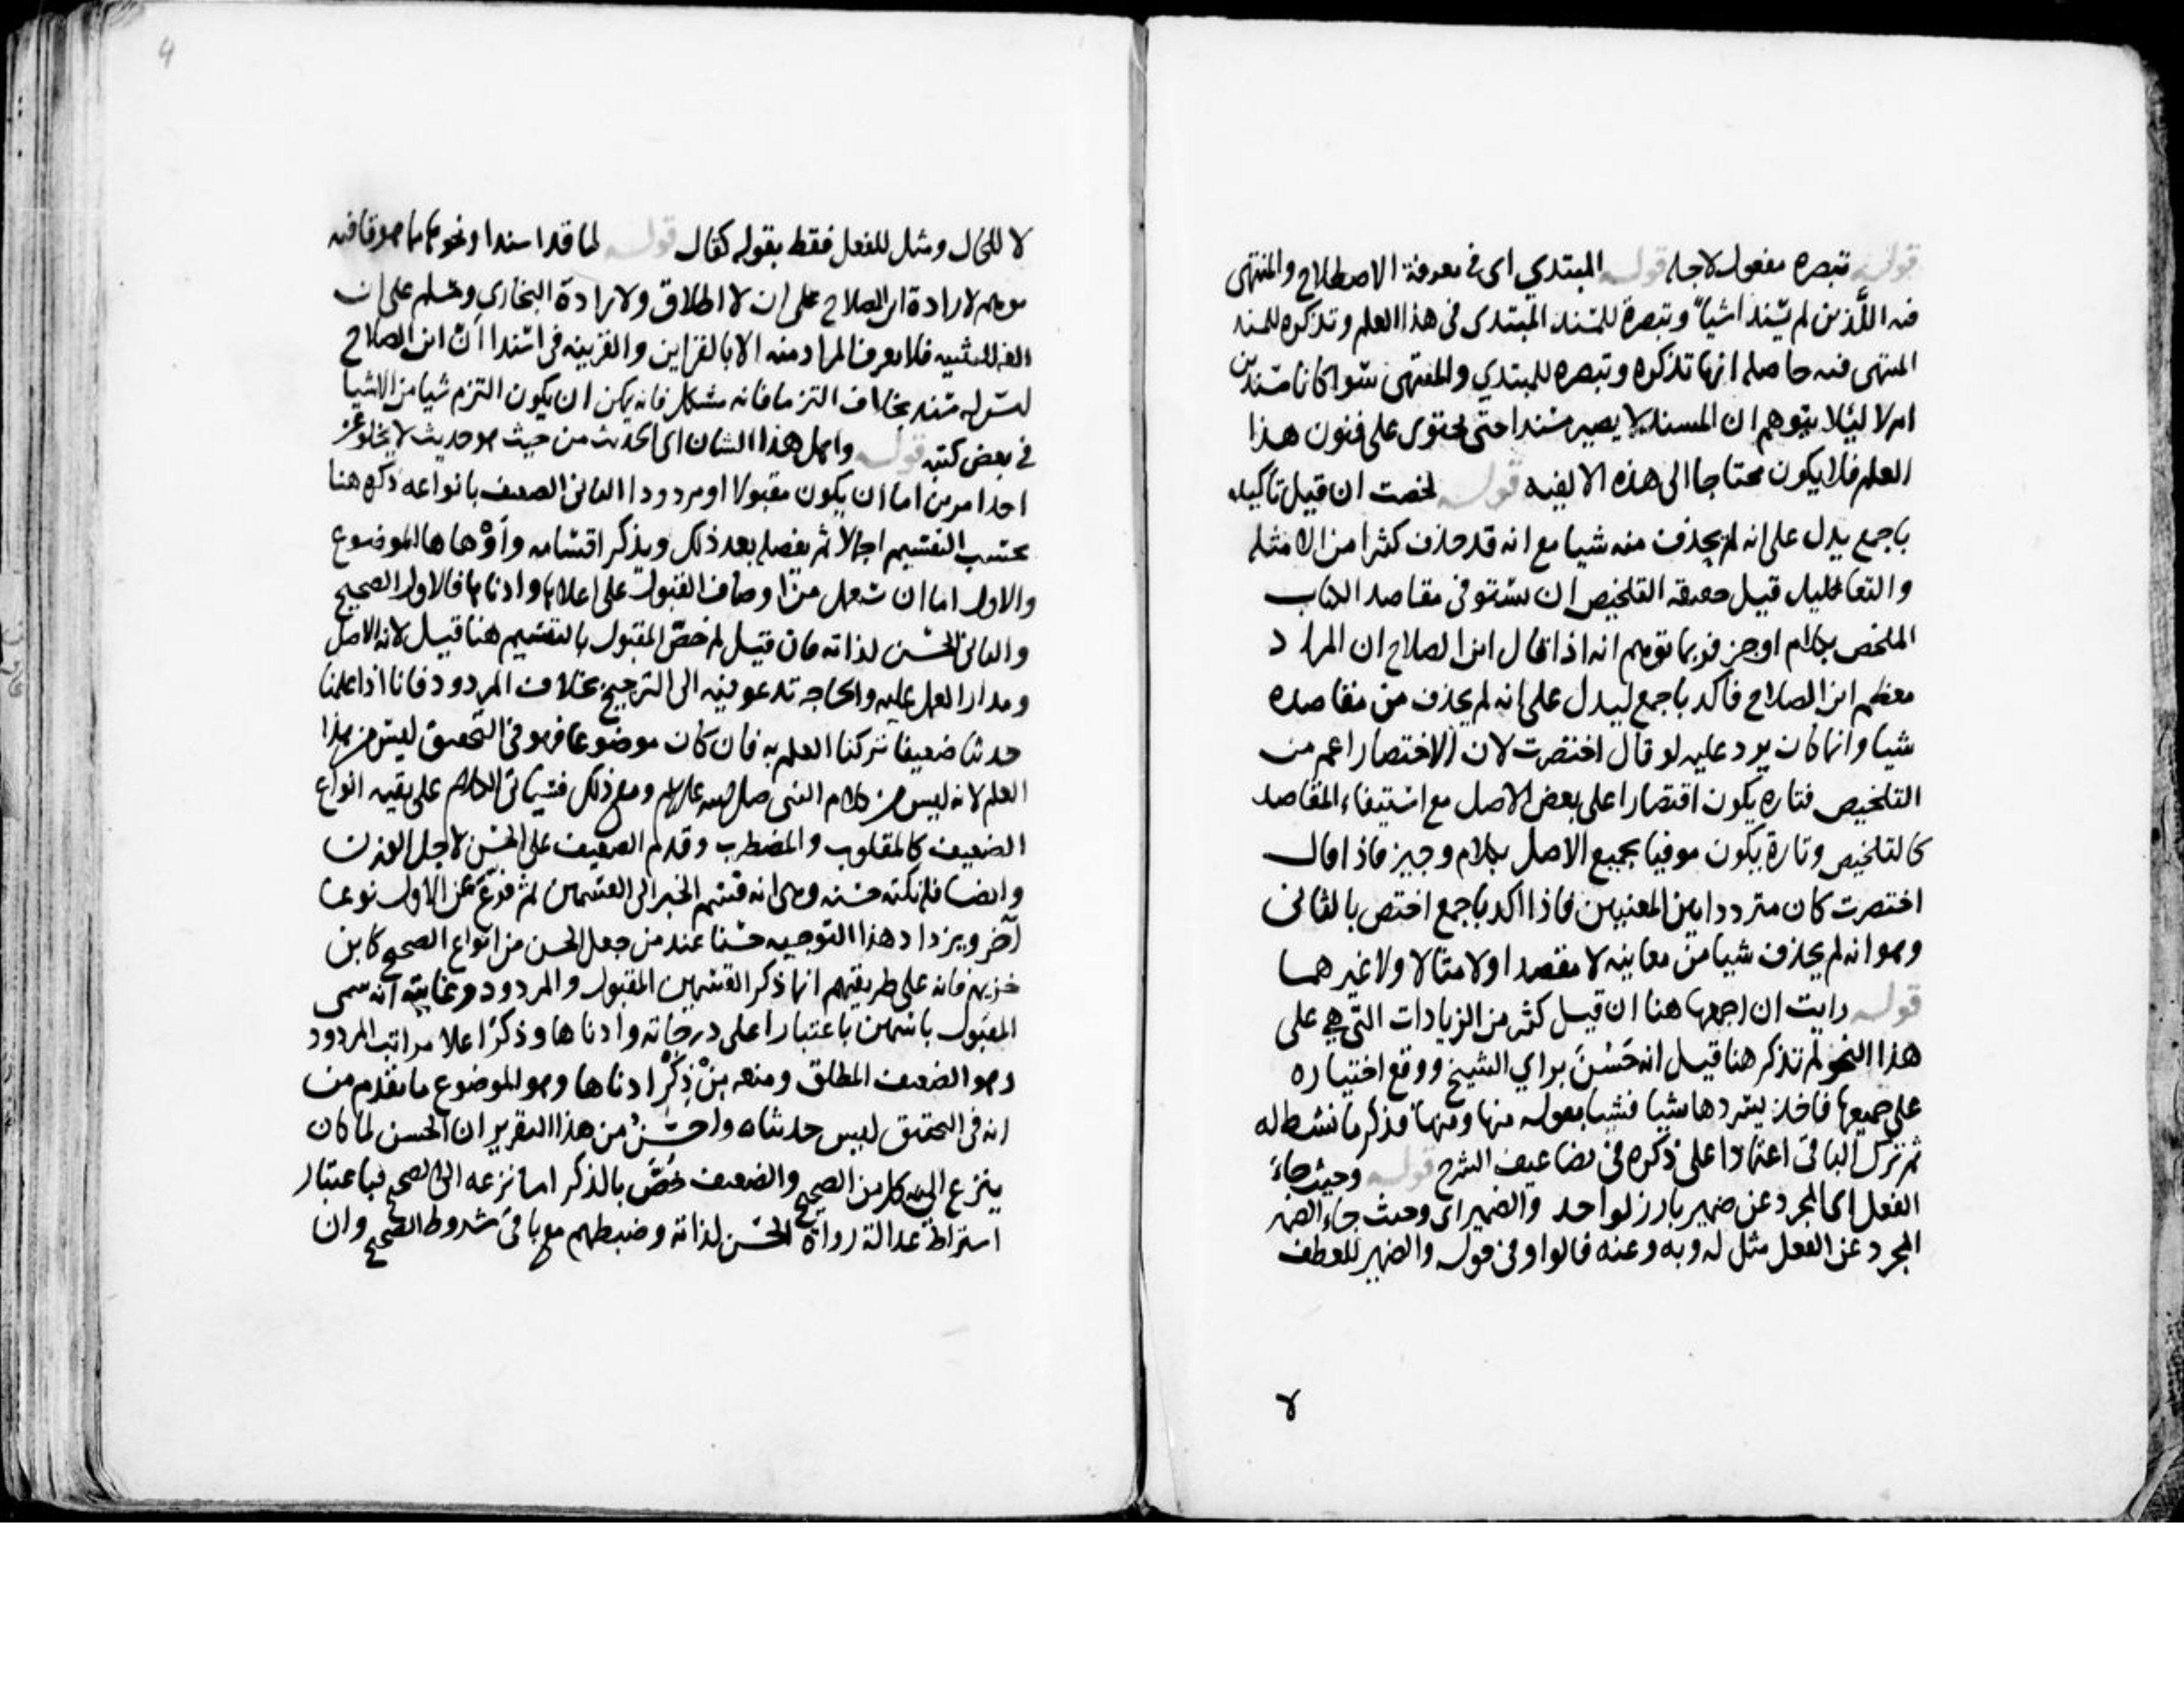 قوله تبصره مفعول لاجله قوله المبتدي اى في معرفة الاصطلاح والمنتهى
فيه اللَّذين لم يسندا شيأ وتبصرة للمسند المبتدى فى هذا العلم وتذكره للمسند
المنتهى فيه حاصله انها تذكره وتبصره للمبتدي والمنتهى سوا كانا مسندين
ام لا ليلا يتوهم ان المسند لا يصير مسندا حتى يحتوى على فنون هذا
العلم فلا يكون محتاجا الى هذه الالفيه قوله لخصت ان قيل تاكيده
باجمع يدل على انه لم يحذف منه شيا مع انه قد حذف كثرا من الامثله
والتعاليل قيل حقيقه التلخيص ان يستوفى مقاصد الكتاب
الملخص بكلام اوجز فربما توهم انه اذا قال ابن الصلاح ان المراد
معظم ابن الصلاح فاكد باجمع ليدل على انه لم يحذف من مقاصده
شيا وانما كان يرد عليه لو قال اختصرت لان الاختصار اعم من
التلخيص فتاره يكون اقتصارا على بعض الاصل مع استيفاء المقاصد
كالتلخيص وتارة يكون موفيا بجميع الاصل بكلام وجيز فاذا قال
اختصرت كان مترددا بين المعنيين فاذا اكد باجمع اختص بالثانى
وهو انه لم يحذف شيا من معانيه لا مقصدا ولا مثالا ولا غيرهما
قوله رايت ان اجمعها هنا ان قيل كثير من الزيادات التي هي على
هذا النحو لم تذكر هنا قيل انه حَسُنَ براي الشيخ ووقع اختياره
على جميعها فاخذ يسردها شيا فشيا بقوله منها ومنها فذكر ما نشط له
ثم ترك الباقى اعتمادا على ذكره فى تضاعيف الشرح قوله وحيث جاءَ
الفعل اى المجرد عن ضمير بارز لواحد والضمير اى وحيث جاء الضمير
المجرد عن الفعل مثل له وبه وعنه قالوا وفى قوله والضمير للعطف
لا
لا للحال ومثل للفعل فقط بقوله كقال قوله لما قدا سندا ونحوهما مما هو قافيه
موهم لارادة ابن الصلاح على ان لا اطلاق ولا رادة البخاري ومسلم على ان
الفه للتثنيه فلا يعرف المراد منه الا بالقراين والقرينه فى اسندا انّ ابن الصلاح
ليس له مسند بخلاف التزما فانه مشكل فانه يمكن ان يكون التزم شيا من الاشيا
في بعض كتبه قوله واهل هذا الشان اى الحديث من حيث هو حديث لا يخلو عن
احد امرين اما ان يكون مقبولا او مردودا الثانى الضعيف بانواعه ذكره هنا
بحسب التقسيم اجمالا ثم يفصله بعد ذلك ويذكر اقسامه واَوْهاها الموضوع
والاول اما ان يشمل من اوصاف القبول على اعلاها وادناها فالاول الصحيح
والثانى الحسن لذاته فان قيل لم خصّ المقبول بالتقسيم هنا قيل لانه الاصل
ومدار العمل عليه والحاجه تدعو فيه الى الترجيح بخلاف المردود فانا اذا علمنا
حديثا ضعيفا تركنا العمل به فان كان موضوعا فهو فى التحقيق ليس من هذا
العلم لانه ليس من كلام النبى صلى الله عليه وسلم ومع ذلك فسياتى الكلام على بقيه انواع
الضعيف كالمقلوب والمضطرب وقدم الضعيف على الحسن لاجل الوزن
وايضا فلنكته حسنه وهى انه قسّم الخبر الى القسمين ثم فرّع عن الاول نوعا
آخر ويزداد هذا التوجيه حسنا عند من جعل الحسن من انواع الصحيح كابن
خزيمه فانه على طريقتهم انما ذكر القسمين المقبول والمردود وغايته انه سمى
المقبول باسمين باعتبار اعلى درجاته وادناها وذكرُ اعلا مراتب المردود
وهو الضعيف المطلق ومنعه مِنْ ذِكْرِ ادناها وهو الموضوع ما تقدم من
انه فى التحقيق ليس حديثا واحسنُ من هذا التقرير ان الحسن لما كان
ينزع اليه كل من الصحيح والضعيف خُصَّ بالذكر اما نزعه الى الصحيح فباعتبار
اشتراط عدالة رواة الحسن لذاته وضبطهم مع باقى شروط الصحيح وان